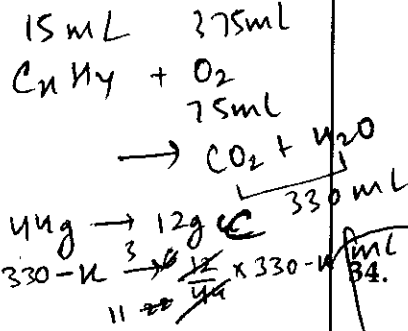 15 mL 375mL
CxHy + O2
75mL
→ CO2 + H2O
330 mL
44g → 12g C
330-x → 12/44 × 330-x
3
11
mL
34.